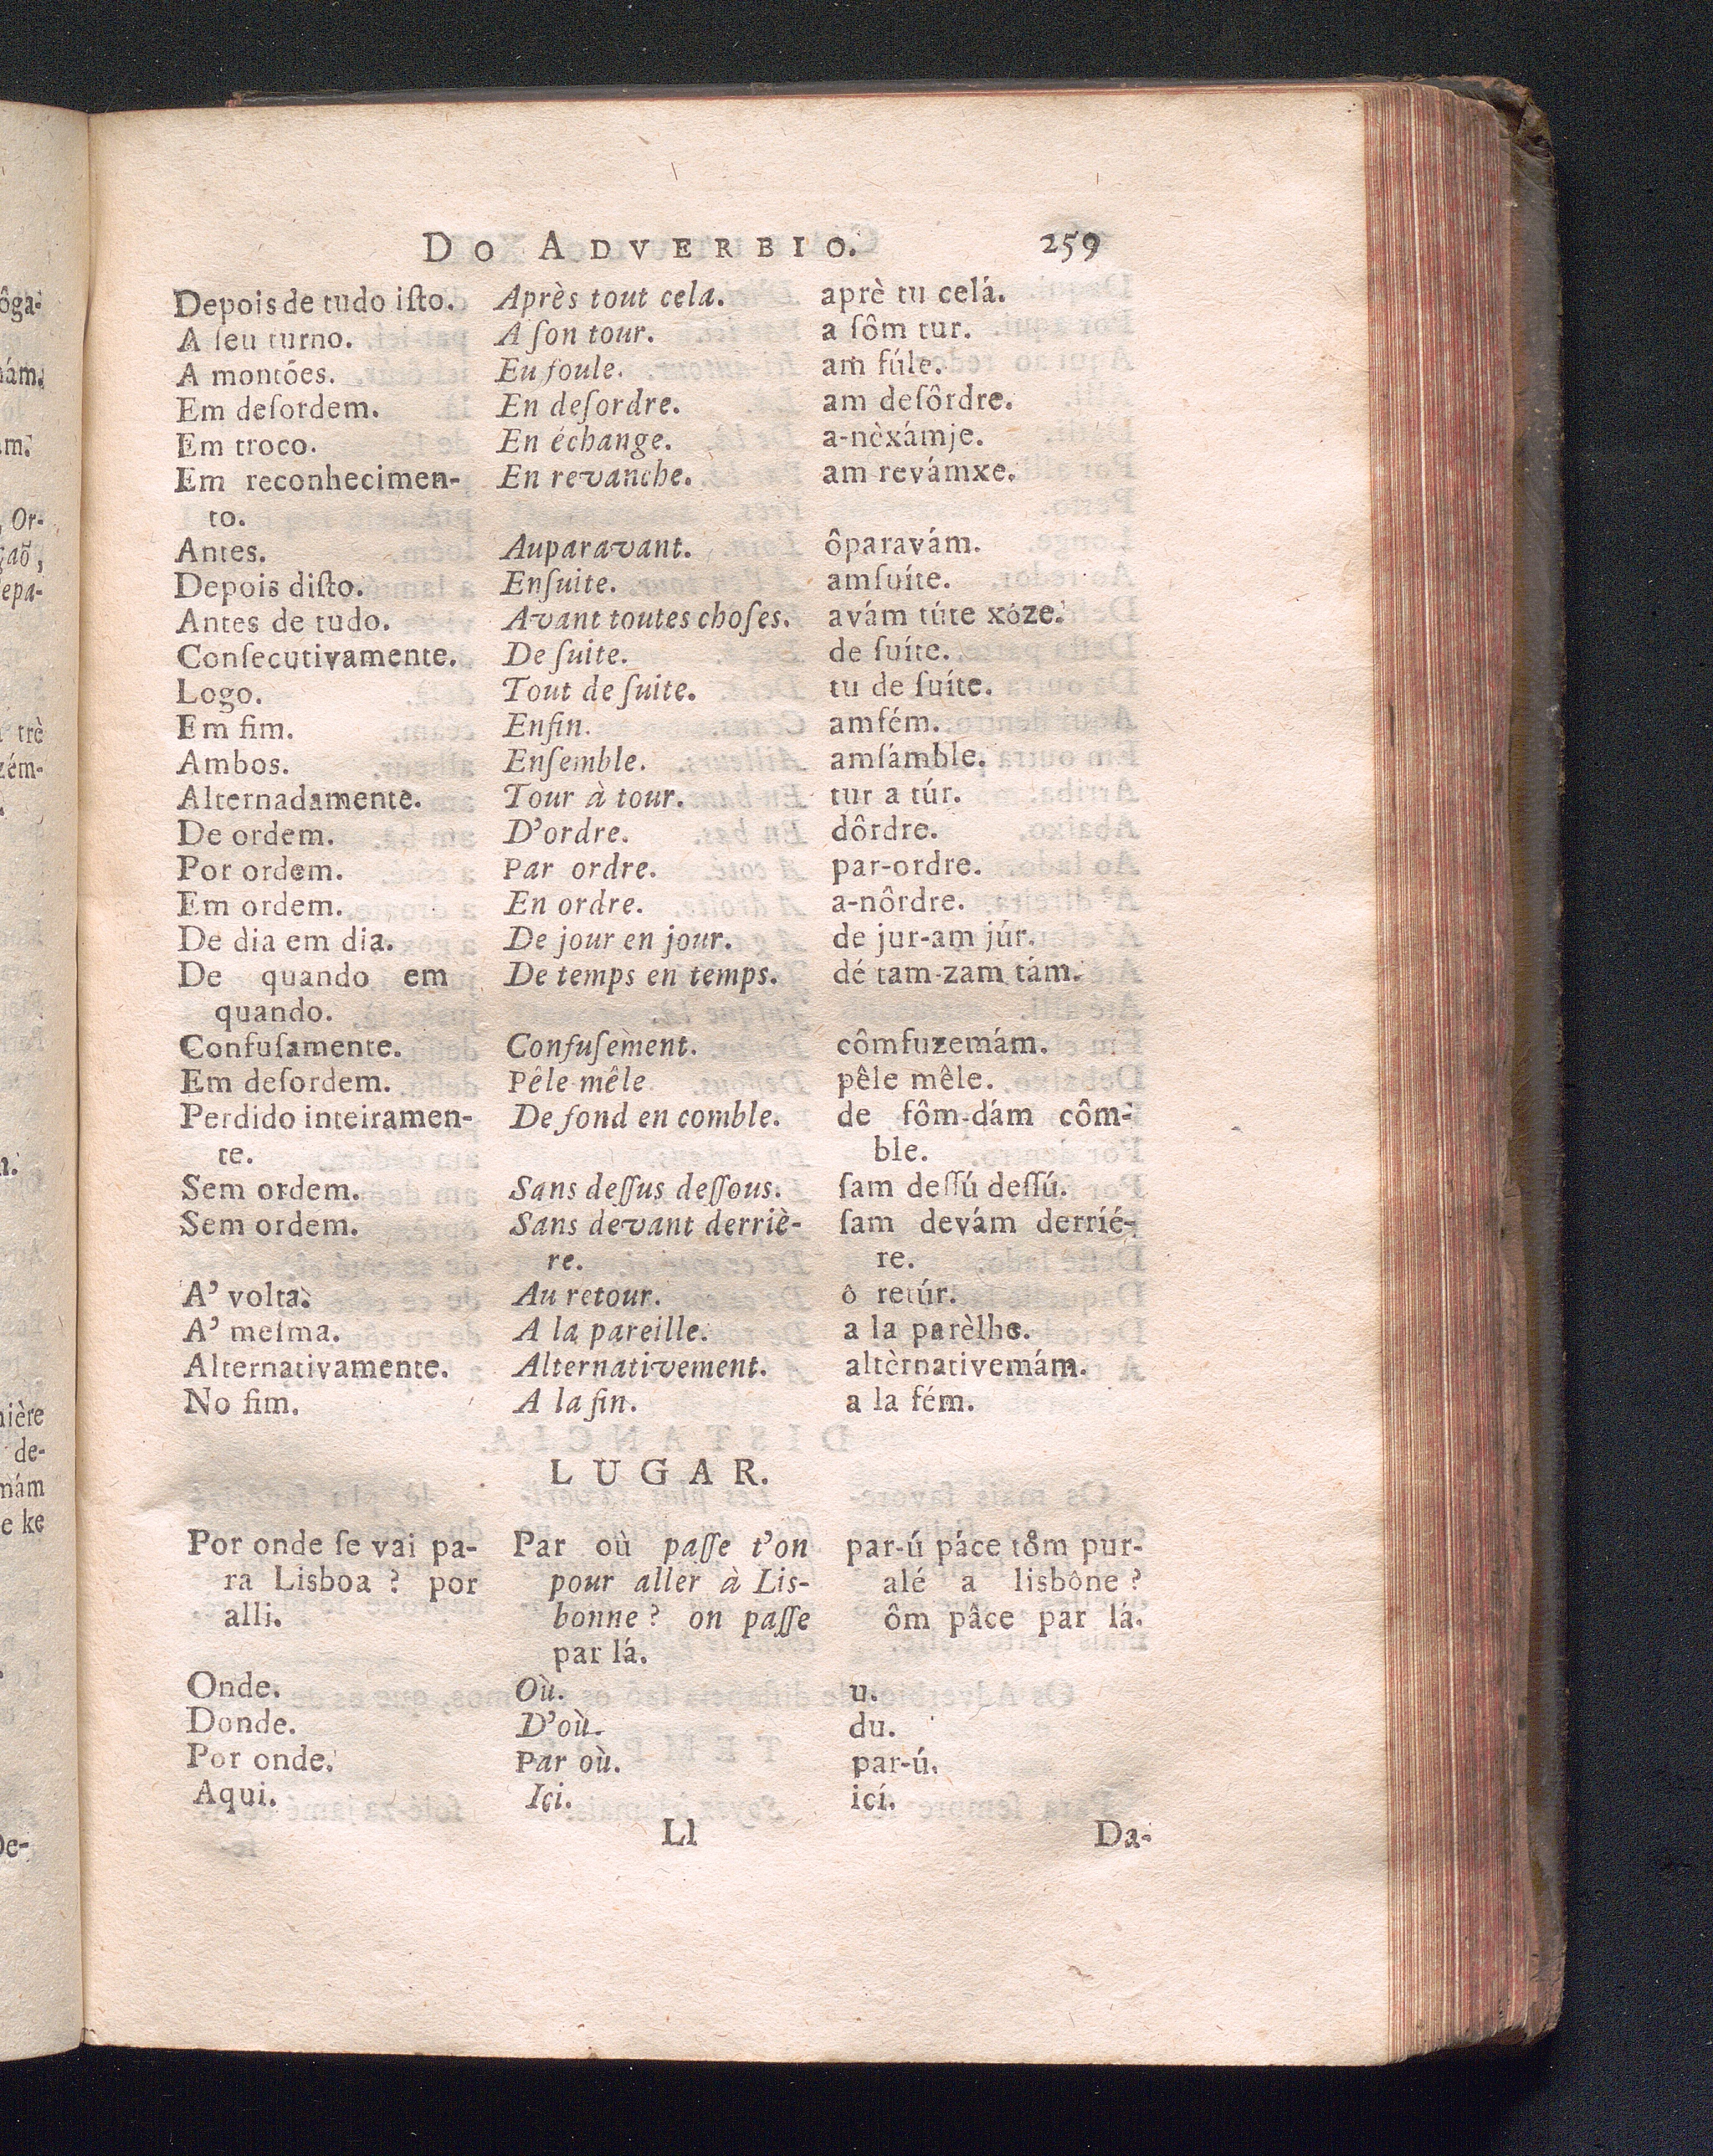 ôga-
nám.
am.
, Or-
çaõ,
epa-
trè
zém-
nière
de-
mám
e ke
De-
DO ADVERBIO. 259
Depois de tudo iſto. Après tout cela. aprè tu celá.
A ſeu turno. A ſon tour. a ſôm tur.
A montões. Eu foule. am fúle.
Em deſordem. En deſordre. am deſôrdre.
Em troco. En échange. a-nèxámje.
Em reconhecimen- En revanche. am revámxe.
to.
Antes. Auparavant. ôparavám.
Depois diſto. Enſuite. amſuíte.
Antes de tudo. Avant toutes choſes. avám túte xóze.
Conſecutivamente. De ſuite. de ſuíte.
Logo. Tout de ſuite. tu de ſuíte.
Em fim. Enfin. amfém.
Ambos. Enſemble. amſámble.
Alternadamente. Tour à tour. tur a túr.
De ordem. D'ordre. dôrdre.
Por ordem. Par ordre. par-ordre.
Em ordem. En ordre. a-nôrdre.
De dia em dia. De jour en jour. de jur-am júr.
De quando em De temps en temps. dé tam-zam tám.
quando.
Confuſamente. Confuſèment. cômfuzemám.
Em deſordem. Pêle-mêle pêle mêle.
Perdido inteiramen- De fond en comble. de fôm-dám côm-
te. ble.
Sem ordem. Sans deſſus deſſous. ſam deſſú deſſú.
Sem ordem. Sans devant derriè- ſam devám derrié-
re. re.
A' volta. Au retour. ô retúr.
A' meſma. A la pareille. a la parèlhe.
Alternativamente. Alternativement. altèrnativemám.
No fim. A la fin. a la fém.
LUGAR.
Por onde ſe vai pa- Par où paſſe t'on par-ú páce tôm pur-
ra Lisboa ? por pour aller à Lis- alé a lisbône ?
alli. bonne ? on paſſe ôm pâce par lá.
par lá.
Onde. Où. u.
Donde. D'où. du.
Por onde. Par où. par-ú.
Aqui. Içi. içí.
Ll Da-